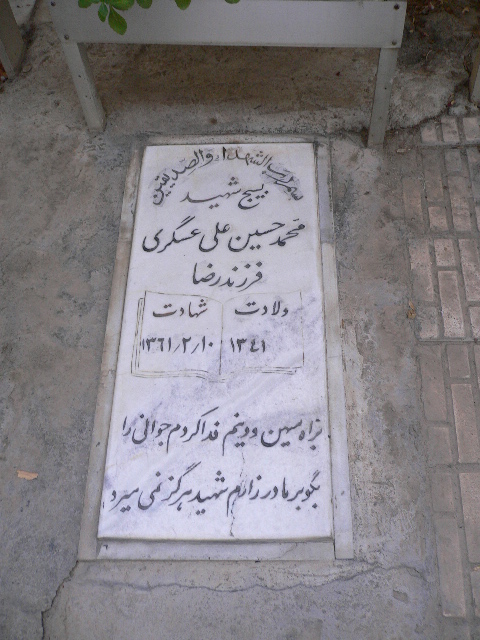 بسم رب الشهداء والصدیقین
بسیج شهید
محمد حسین علی عسگری
فرزند رضا
ولادت شهادت
۱۳۴۱ ۱۳۶۱/۲/۱۰
براه میهن و دینم فدا کردم جوانی را
بگو بر مادر زارم شهید هرگز نمی میرد